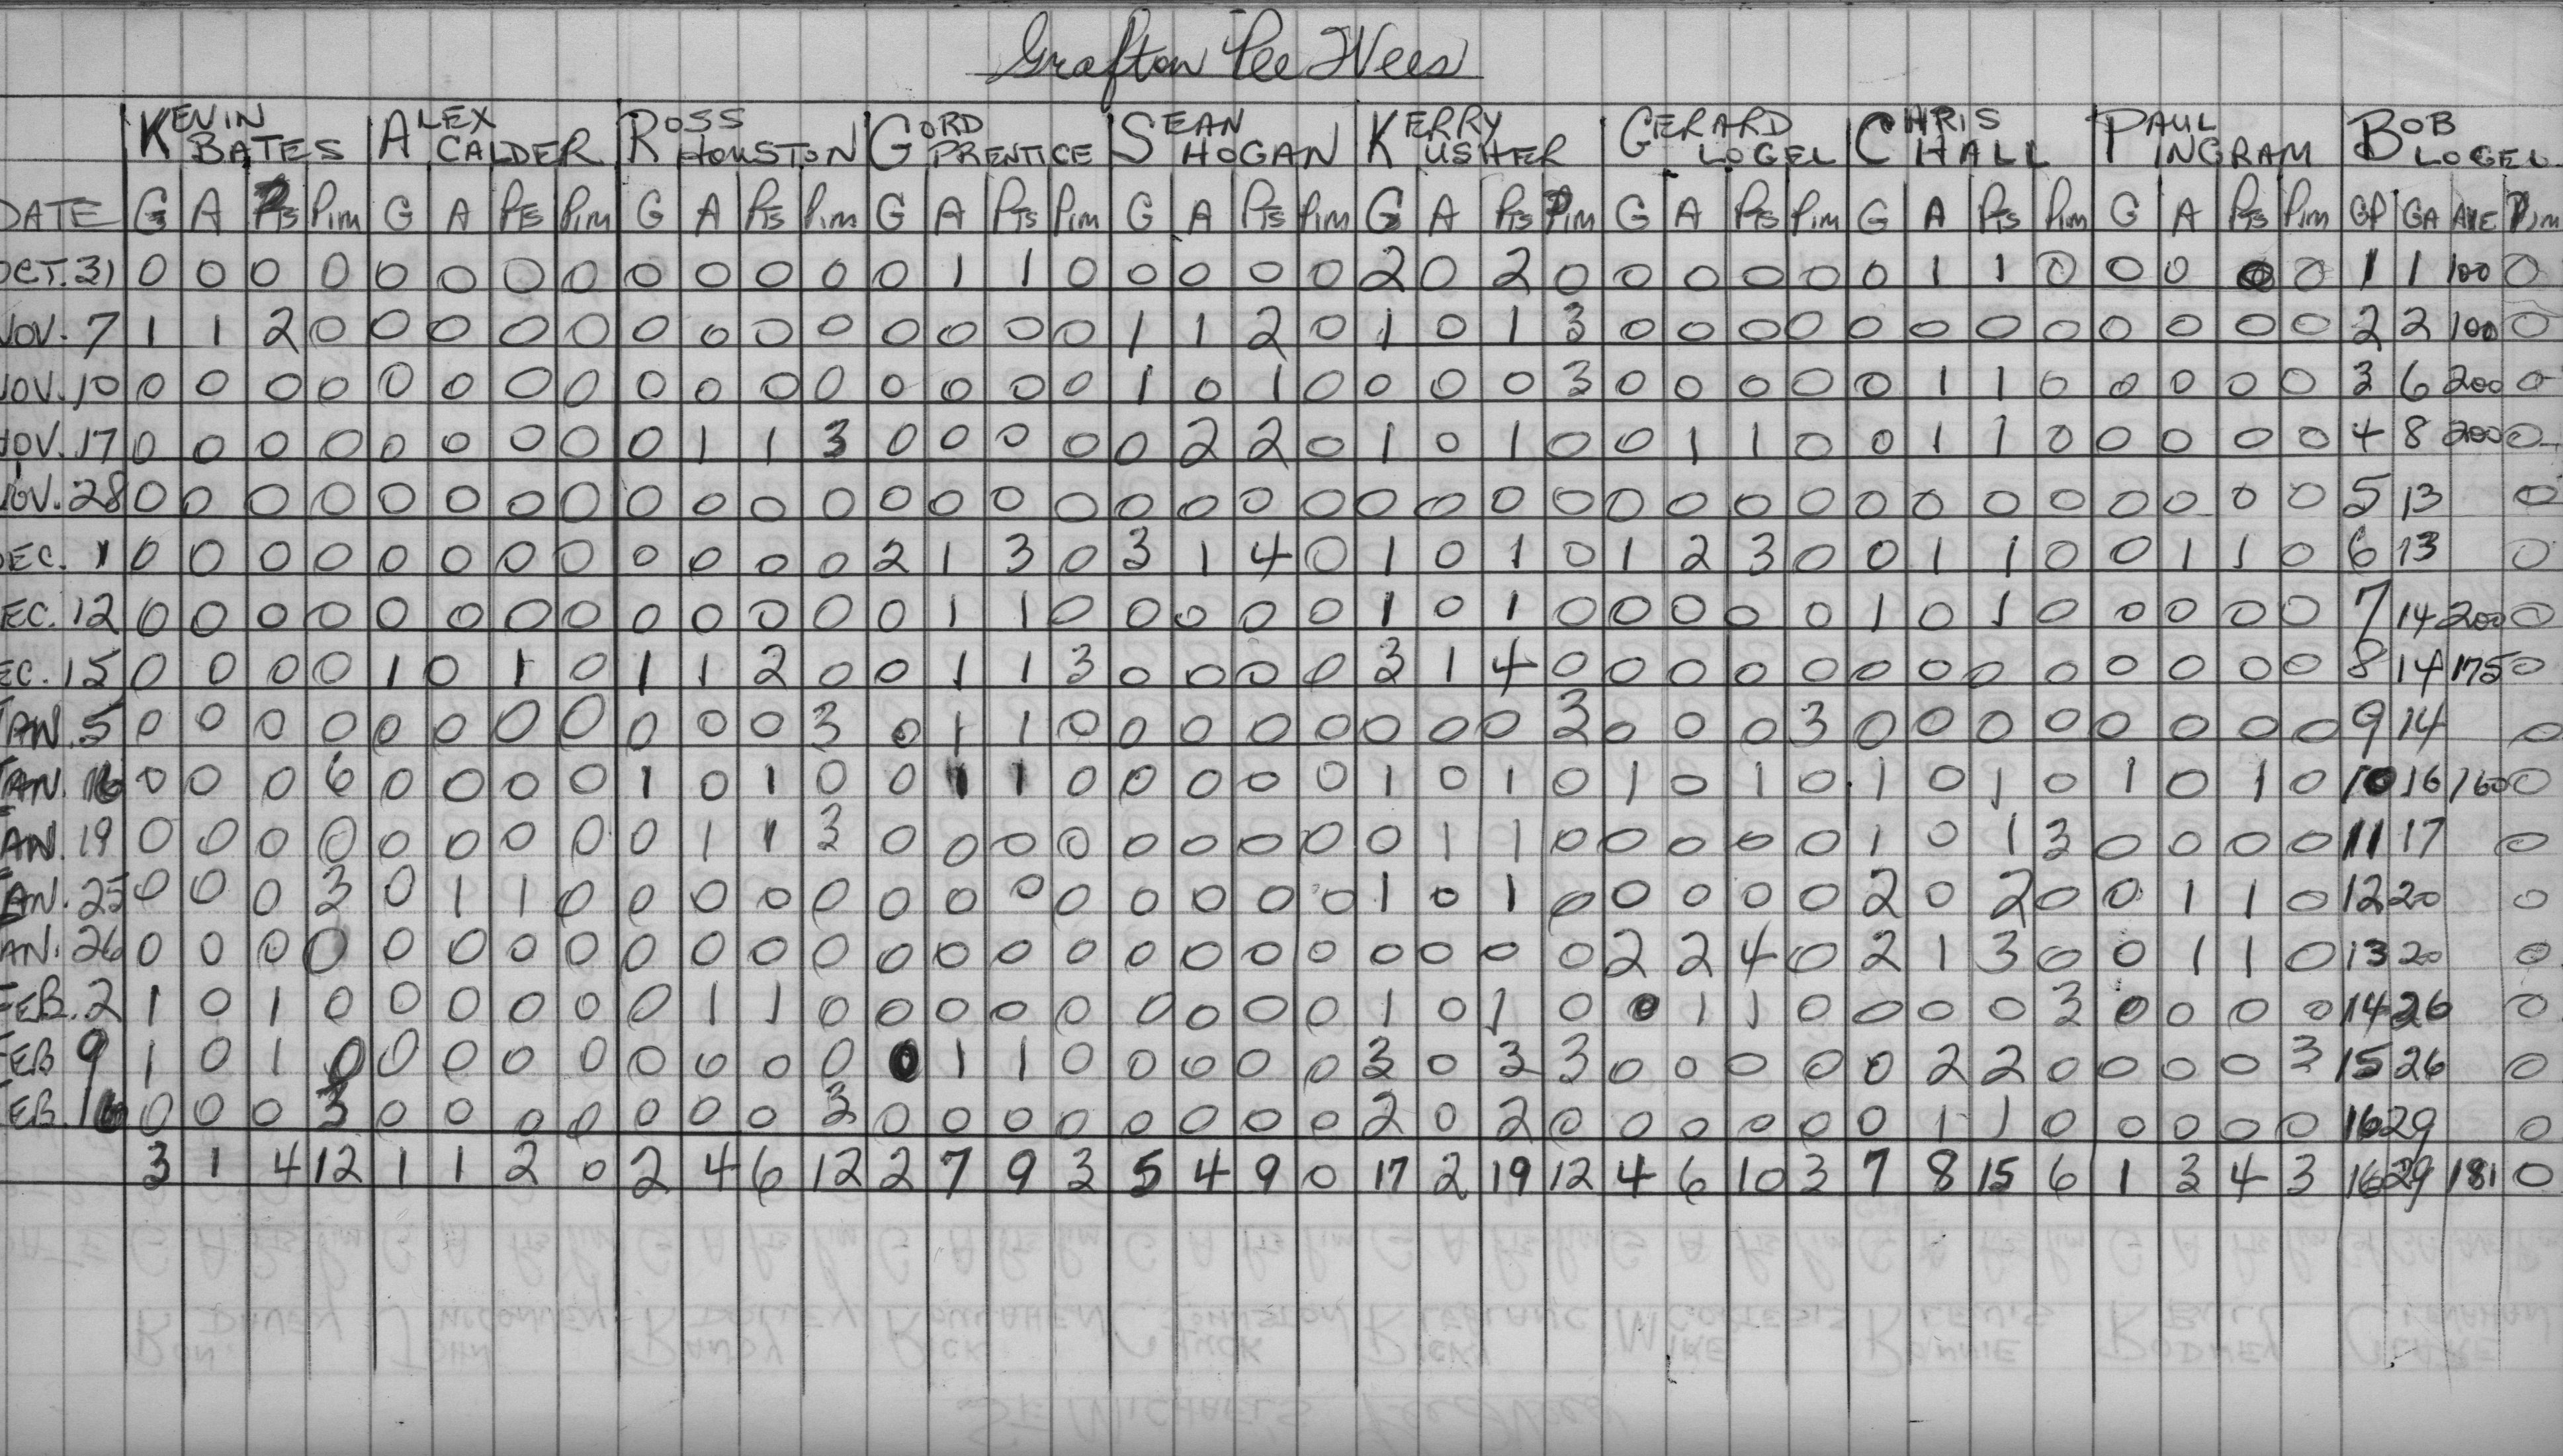 Grafton Pee Wees
KEVIN BATES ALEX CALDER ROSS HOUSTON GORD PRENTICE SEAN HOGAN KERRY USHER GERARD LOGEL CHRIS HALL PAUL INGRAM BOB LOGEL
DATE G A Pts Pim G A Pts Pim G A Pts Pim G A Pts Pim G A Pts Pim G A Pts Pim G A Pts Pim G A Pts Pim G A Pts Pim GP GA AVE Pim
OCT. 31 0 0 0 0 0 0 0 0 0 0 0 0 0 1 1 0 0 0 0 0 2 0 2 0 0 0 0 0 0 1 1 0 0 0 0 0 1 1 100 0
NOV. 7 1 1 2 0 0 0 0 0 0 0 0 0 0 0 0 0 1 1 2 0 1 0 1 3 0 0 0 0 0 0 0 0 0 0 0 0 2 2 100 0
NOV. 10 0 0 0 0 0 0 0 0 0 0 0 0 0 0 0 0 1 0 1 0 0 0 0 3 0 0 0 0 0 1 1 0 0 0 0 0 3 6 200 0
NOV. 17 0 0 0 0 0 0 0 0 0 1 1 3 0 0 0 0 0 2 2 0 1 0 1 0 0 1 1 0 0 1 1 0 0 0 0 0 4 8 200 0
NOV. 28 0 0 0 0 0 0 0 0 0 0 0 0 0 0 0 0 0 0 0 0 0 0 0 0 0 0 0 0 0 0 0 0 0 0 0 0 5 13 0
DEC. 1 0 0 0 0 0 0 0 0 0 0 0 0 2 1 3 0 3 1 4 0 1 0 1 0 1 2 3 0 0 1 1 0 0 1 1 0 6 13 0
DEC. 12 0 0 0 0 0 0 0 0 0 0 0 0 0 1 1 0 0 0 0 0 1 0 1 0 0 0 0 0 1 0 1 0 0 0 0 0 7 14 200 0
DEC. 15 0 0 0 0 1 0 1 0 1 1 2 0 0 1 1 3 0 0 0 0 3 1 4 0 0 0 0 0 0 0 0 0 0 0 0 0 8 14 175 0
JAN. 5 0 0 0 0 0 0 0 0 0 0 0 3 0 1 1 0 0 0 0 0 0 0 0 3 0 0 0 3 0 0 0 0 0 0 0 0 9 14 0
JAN. 16 0 0 0 6 0 0 0 0 1 0 1 0 0 1 1 0 0 0 0 0 1 0 1 0 1 0 1 0 1 0 1 0 1 0 1 0 10 16 160 0
JAN. 19 0 0 0 0 0 0 0 0 0 1 1 3 0 0 0 0 0 0 0 0 0 1 1 0 0 0 0 0 1 0 1 3 0 0 0 0 11 17 0
JAN. 25 0 0 0 3 0 1 1 0 0 0 0 0 0 0 0 0 0 0 0 0 1 0 1 0 0 0 0 0 2 0 2 0 0 1 1 0 12 20 0
JAN. 26 0 0 0 0 0 0 0 0 0 0 0 0 0 0 0 0 0 0 0 0 0 0 0 0 2 2 4 0 2 1 3 0 0 1 1 0 13 20 0
FEB. 2 1 0 1 0 0 0 0 0 0 1 1 0 0 0 0 0 0 0 0 0 1 0 1 0 0 1 1 0 0 0 0 3 0 0 0 0 14 26 0
FEB 9 1 0 1 0 0 0 0 0 0 0 0 0 0 1 1 0 0 0 0 0 3 0 3 3 0 0 0 0 0 2 2 0 0 0 0 3 15 26 0
FEB. 16 0 0 0 3 0 0 0 0 0 0 0 3 0 0 0 0 0 0 0 0 2 0 2 0 0 0 0 0 0 1 1 0 0 0 0 0 16 29 0
3 1 4 12 1 1 2 0 2 4 6 12 2 7 9 3 5 4 9 0 17 2 19 12 4 6 10 3 7 8 15 6 1 3 4 3 16 29 181 0